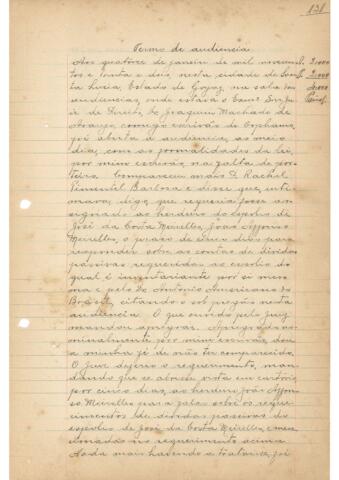 131
Termo de audiencia
Aos quatorze de janeiro de mil novecen-
tos e trinta e dois, nesta cidade de San-
ta Luzia, Estado de Goyaz, na sala das
audiencias, onde estava o Exmo Snr Ju-
iz de Direito Dr Joaquim Machado de
Araujo, comigo escrivão de orphams,
foi aberta a audiencia, ao meio
dia, com as formalidades da lei,
por mim escrivão, na falta de por-
teiro. Compareceu mais D. Rachel
Pimentel Barbosa e disse que, inti-
mava, digo, que requeria fosse as-
signado ao herdeiro do espolio de
José da Costa Meirelles, João Affonso
Meirelles, o praso de cinco dias para
responder sobre as contas de dividas
passivas requeridas ao espolio do
qual é inventariante por si mes-
ma e pelo Dr Antonio Americano do
Brasil, citando o sob pregão nesta
audiencia. O que ouvido pelo juiz
mandou apregoar. Apregoado no-
minalmente por mim escrivão, dou
a minha fé de não ter comparecido.
O Juiz deferiu o requerimento, man-
dando que se abrisse vista em cartorio
por cinco dias, ao herdeiro João Affon-
so Meirelles para fala sobre os reque-
rimentos de dividas passivas do
espolio de José da Costa Meirelles, e men-
cionados no requerimento acima
Nada mais havendo a tratar-se, foi